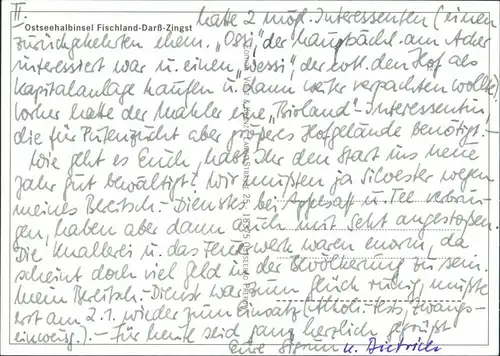 II.
Ostseehalbinsel Fischland-Darß-Zingst
hatte 2 mögl. Interessenten (einen
zurückgekehrten ehem. "Ossi", der hauptsächl. am Acker
interessiert war u. einen "Wessi", der evtl. den Hof als
Kapitalanlage kaufen u. dann weiter verpachten wollte).
Vorher hatte der Makler eine "Bioland"-Interessentin,
die für Putenzucht aber größeres Hofgelände benötigt. –
Wie geht es Euch, habt Ihr den Start ins neue
Jahr gut bewältigt? Wir mußten ja Silvester wegen
meines Bereitsch.-Dienstes bei Apfelsaft u. Tee verbrin-
gen, haben aber dann auch mit Sekt angestoßen.
Die Knallerei u. das Feuerwerk waren enorm, da
scheint doch viel Geld in der Bevölkerung zu sein.
Mein Bereitsch.-Dienst war zum Glück ruhig, mußte
erst am 2.1. wieder zum Einsatz (Alkohol-Tests, Zwangs-
einweis.). – Für heute seid ganz herzlich gegrüßt
Eure Sigrun u. Dietrich